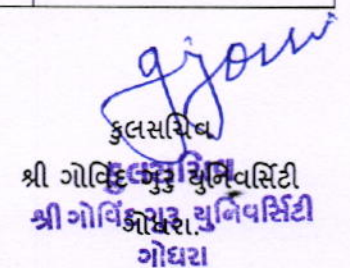 કુલસચિવ
શ્રી ગોવિંદ ગુરુ યુનિવર્સિટી
ગોધરા.
કુલસચિવ
શ્રી ગોવિંદ ગુરુ યુનિવર્સિટી
ગોધરા